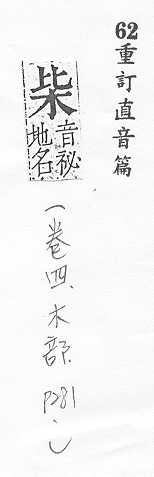 62重訂直音篇
枈音秘地名
(卷四.木部.P281.)